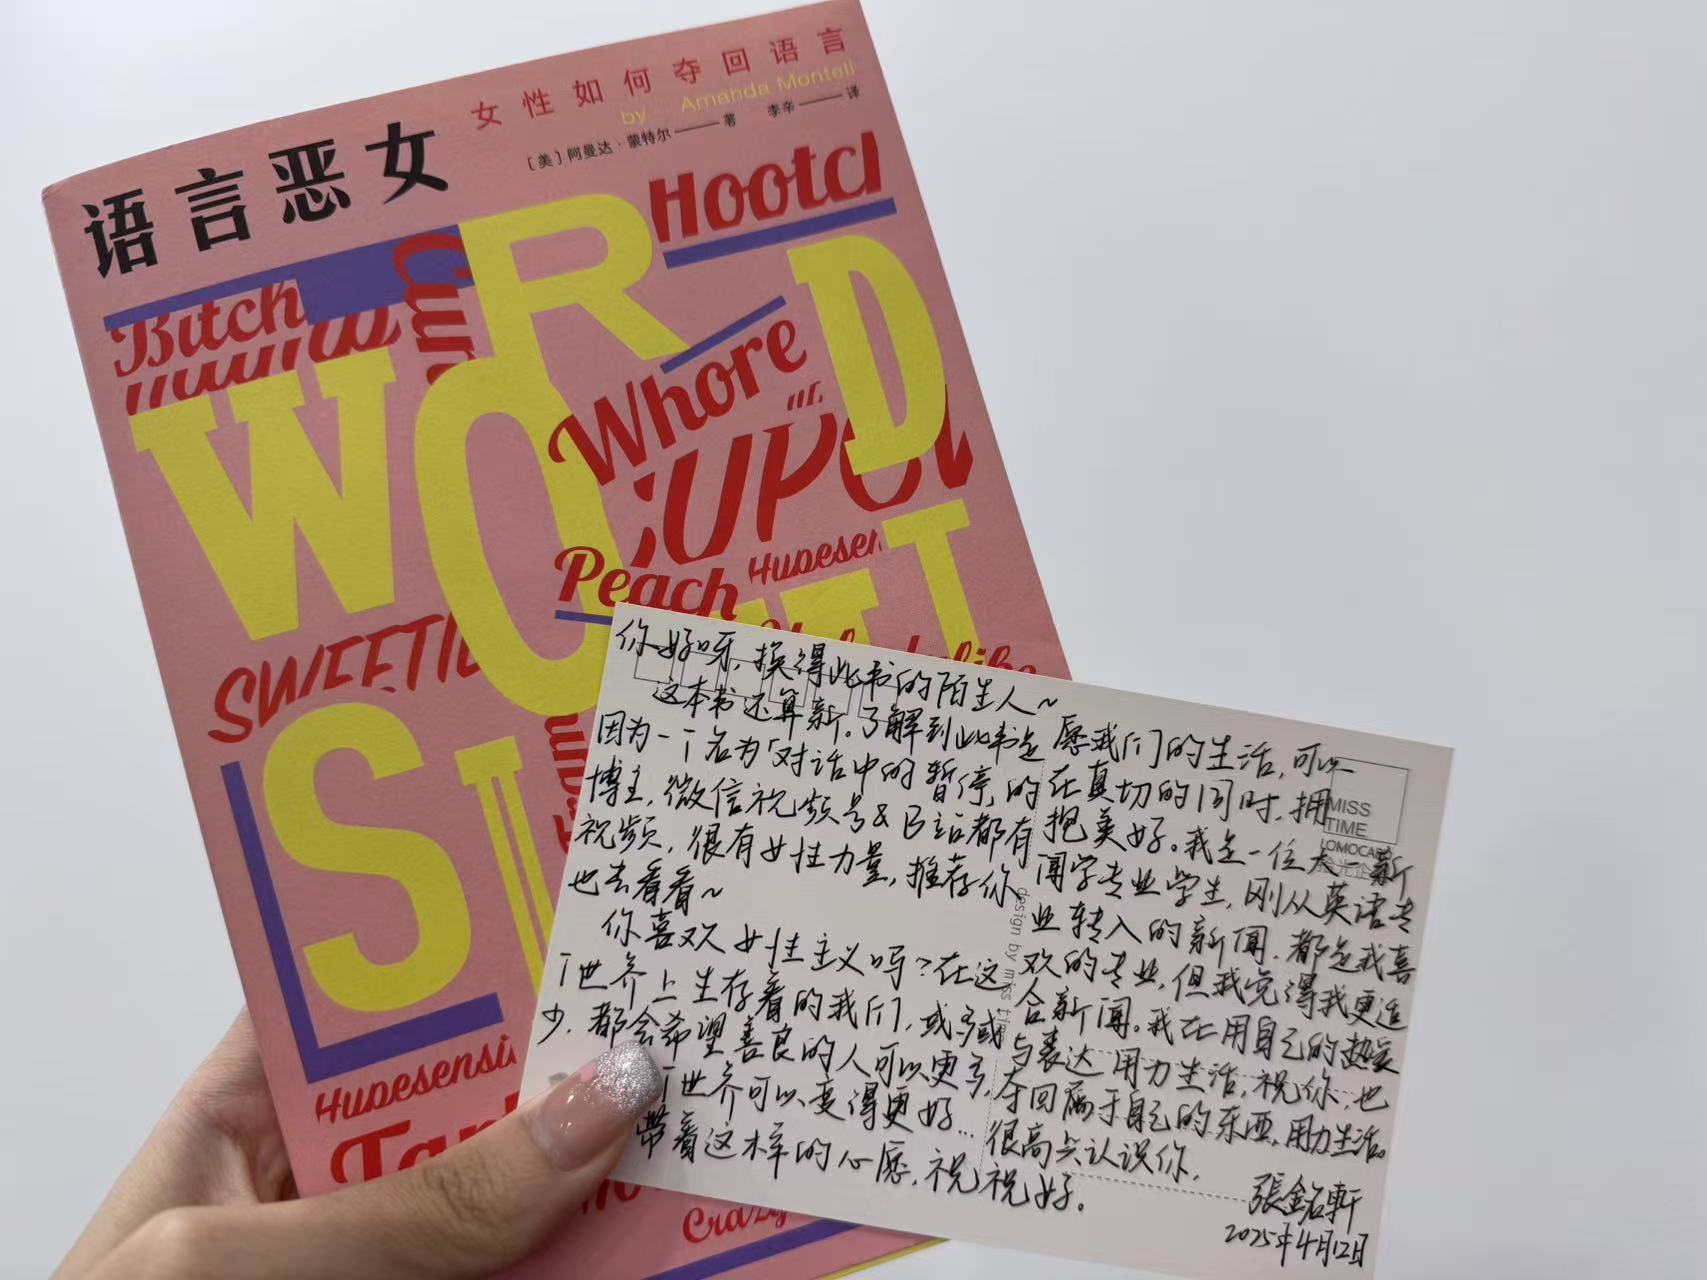 女性如何夺回语言
by Amanda Montell
[美]阿曼达·蒙特尔——著 李辛——译
语言恶女
Hootch
Bitch
WORD
Whore
Peach
SWEETIE
SL
Crazy
你好呀,换得此书的陌生人~
这本书还算新。了解到此书是
因为一个名为「对话中的暂停」的
博主,微信视频号&B站都有
视频,很有女性力量,推荐你
也去看看~
你喜欢女性主义吗?在这
个世界上生存着的我们,或多或
少,都会希望善良的人可以更多,
世界可以变得更好…
带着这样的心愿,祝
愿我们的生活,可以
在真切的同时,拥
抱美好。我是一位大一新
闻学专业学生,刚从英语专
业转入的新闻.都是我喜
欢的专业,但我觉得我更适
合新闻。我在用自己的热爱
与表达用力生活,祝你:也
夺回属于自己的东西,用力生活。
很高兴认识你,
祝好。
張銘軒
2025年4月12日
MISS
TIME
LOMOCARD
design by miss time